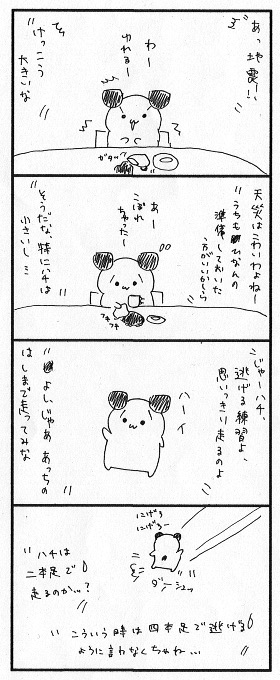 あっ地震ー!、
わー
ゆれるー
けっこう
大きいな
ガタッ
天災はこわいわよねー
うちもひなんの
準備しておいた
方がいいかしら
あー
こぼれ
ちゃったー
そうだな、特にハチは
小さいし…
フキ
フキ
じゃーハチ、
逃げる練習よ、
思いっきり走るのよ
ハーイ
よし、じゃああっちの
はしまで走ってみな
にげろ
にげろー
ダーシュッ
ハチは
二本足で
走るのか…?
こういう時は四本足で逃げる
ように言わなくちゃね…